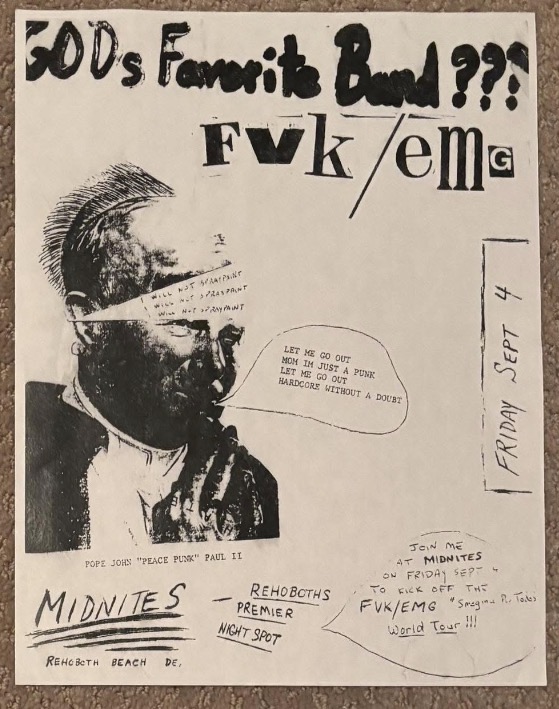 GODs Favorite Band???
FVk/emG
I WILL NOT SPRAYPAINT
I WILL NOT SPRAYPAINT
I WILL NOT SPRAYPAINT
LET ME GO OUT
MOM IM JUST A PUNK
LET ME GO OUT
HARDCORE WITHOUT A DOUBT
FRIDAY SEPT 4
POPE JOHN "PEACE PUNK" PAUL II
MIDNITES
REHOBOTH BEACH DE.
— REHOBOTHS
PREMIER
NIGHT SPOT
JOIN ME
AT MIDNITES
ON FRIDAY SEPT 4
TO KICK OFF THE
FVK/EMG
World Tour!!!